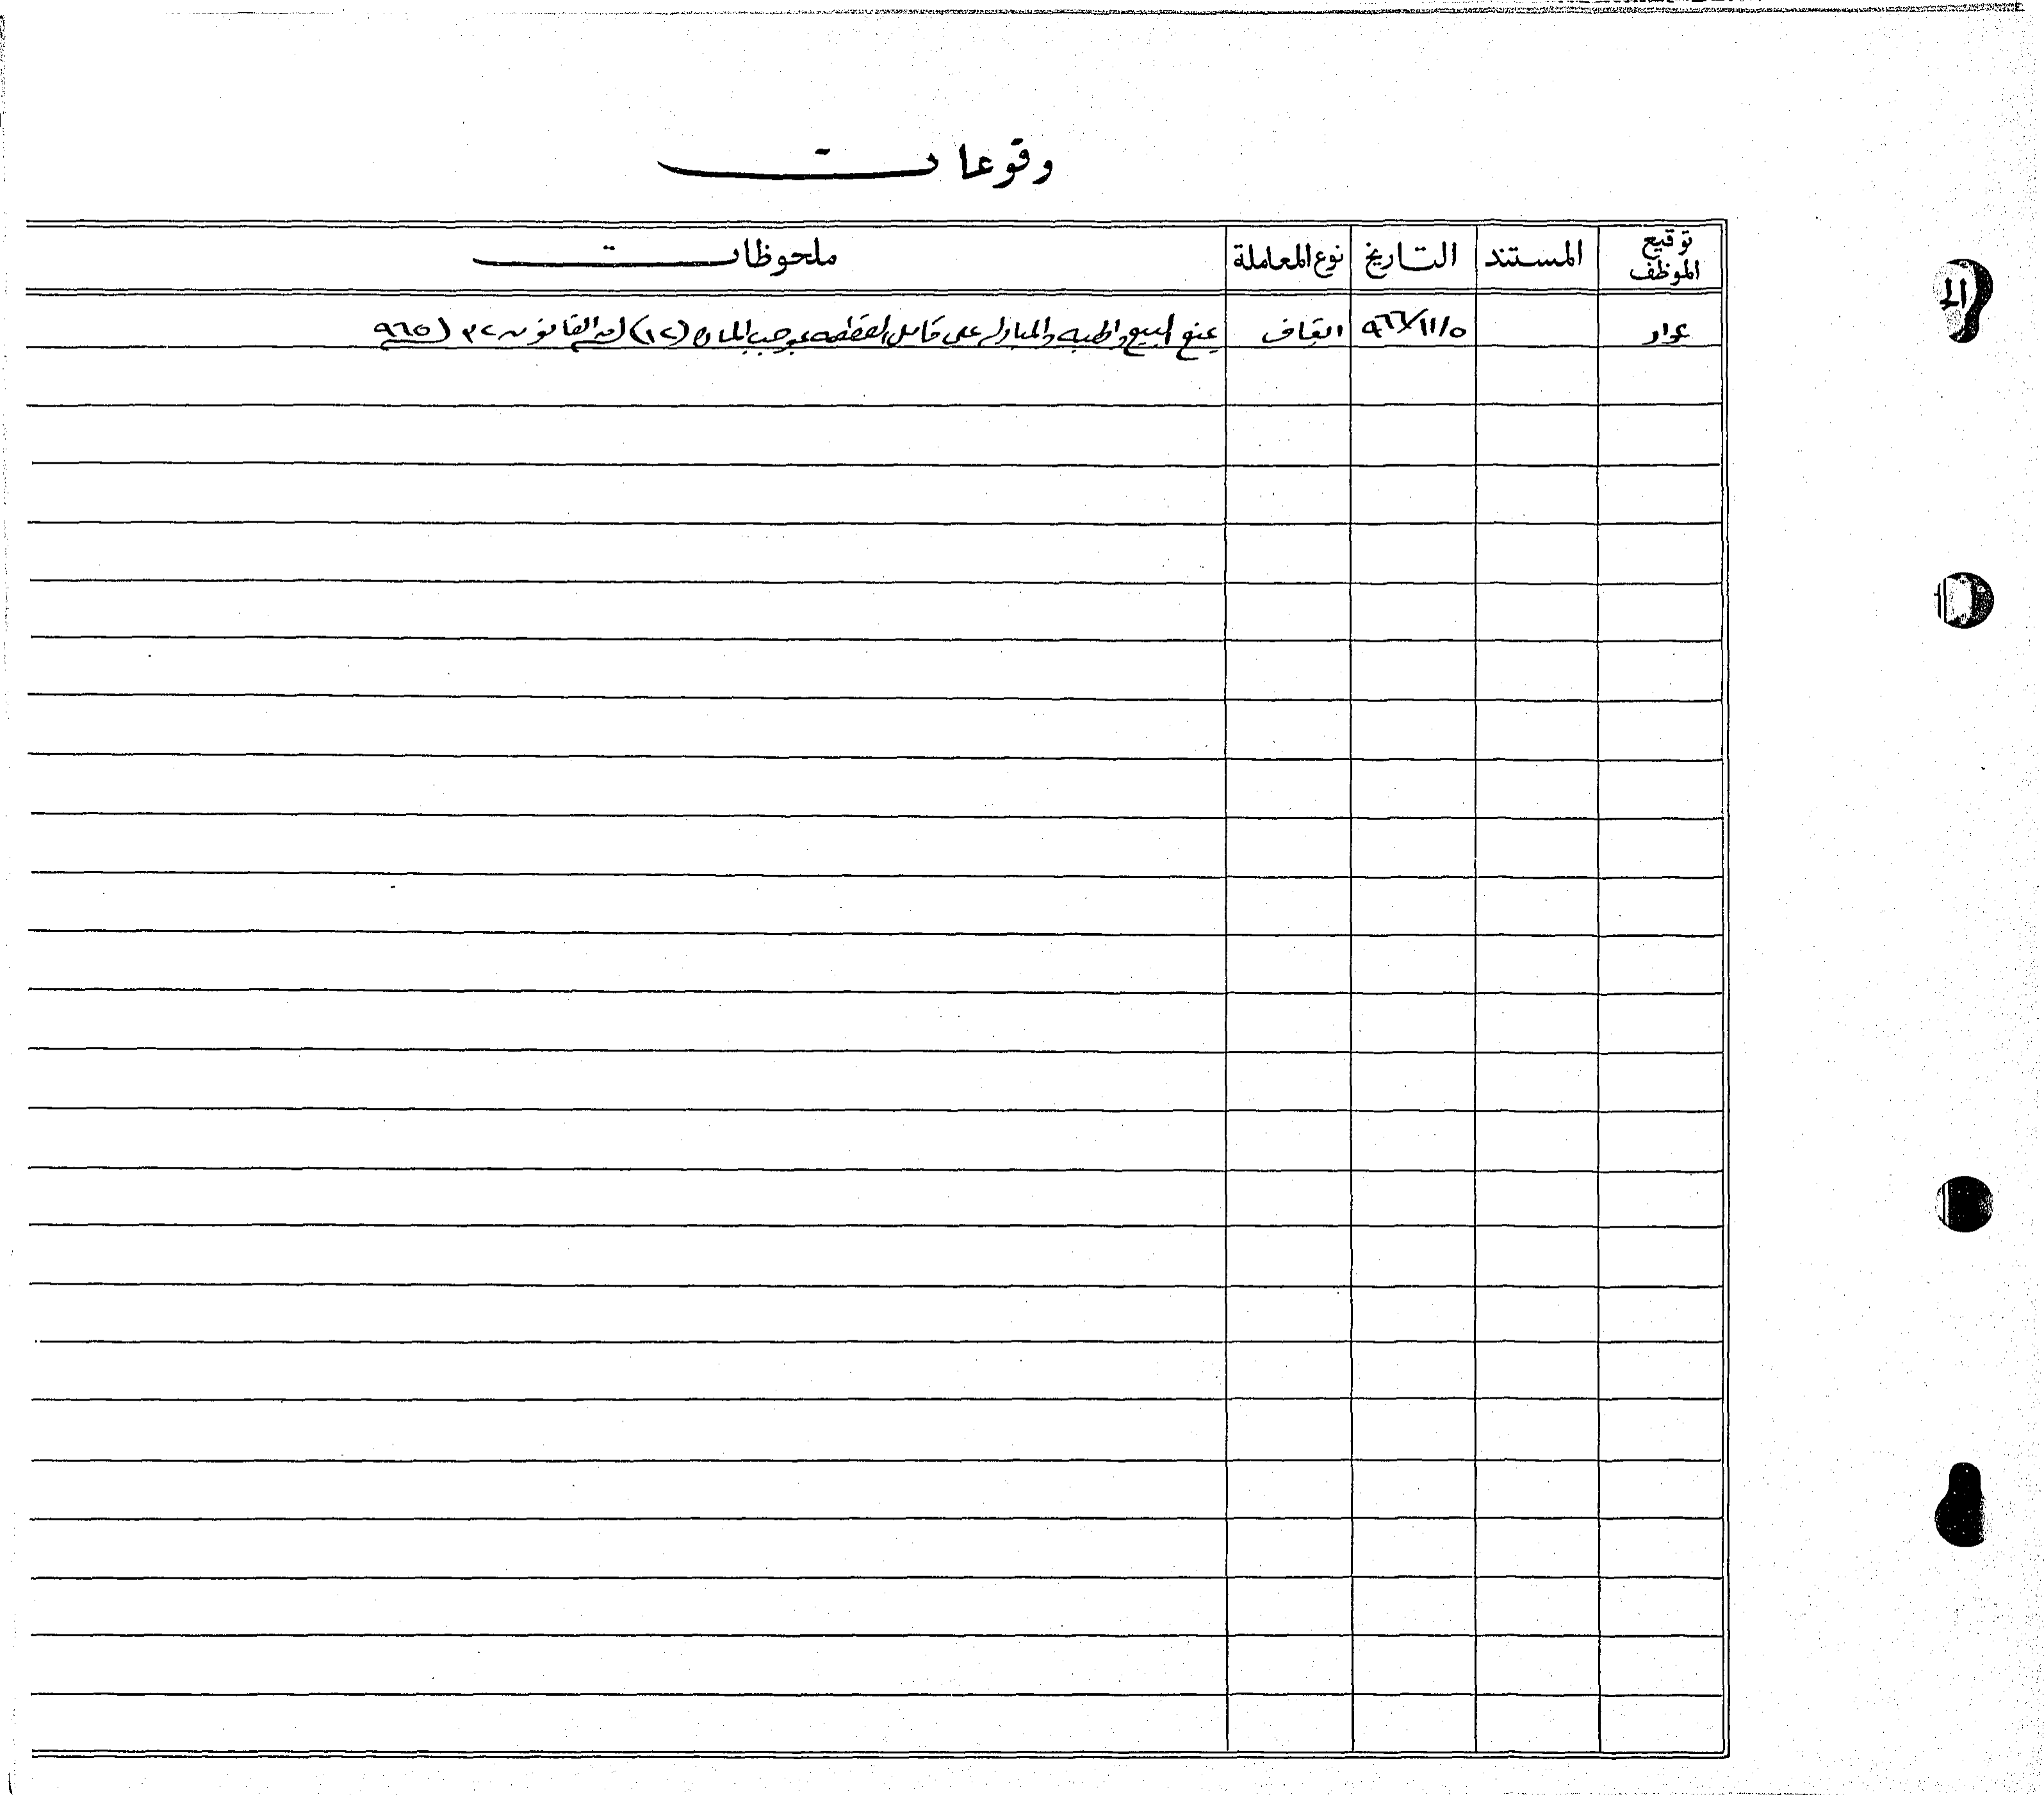 وقوعات
توقيع الموظف	المستند	التاريخ	نوع المعاملة	ملحوظات
٩٦٦/١١/٥	ايقاف	يمنع البيع والهبه والمبادله على كامل القطعه بموجب الماده (١٢) من القانون ٣٢ / ٩٦٥